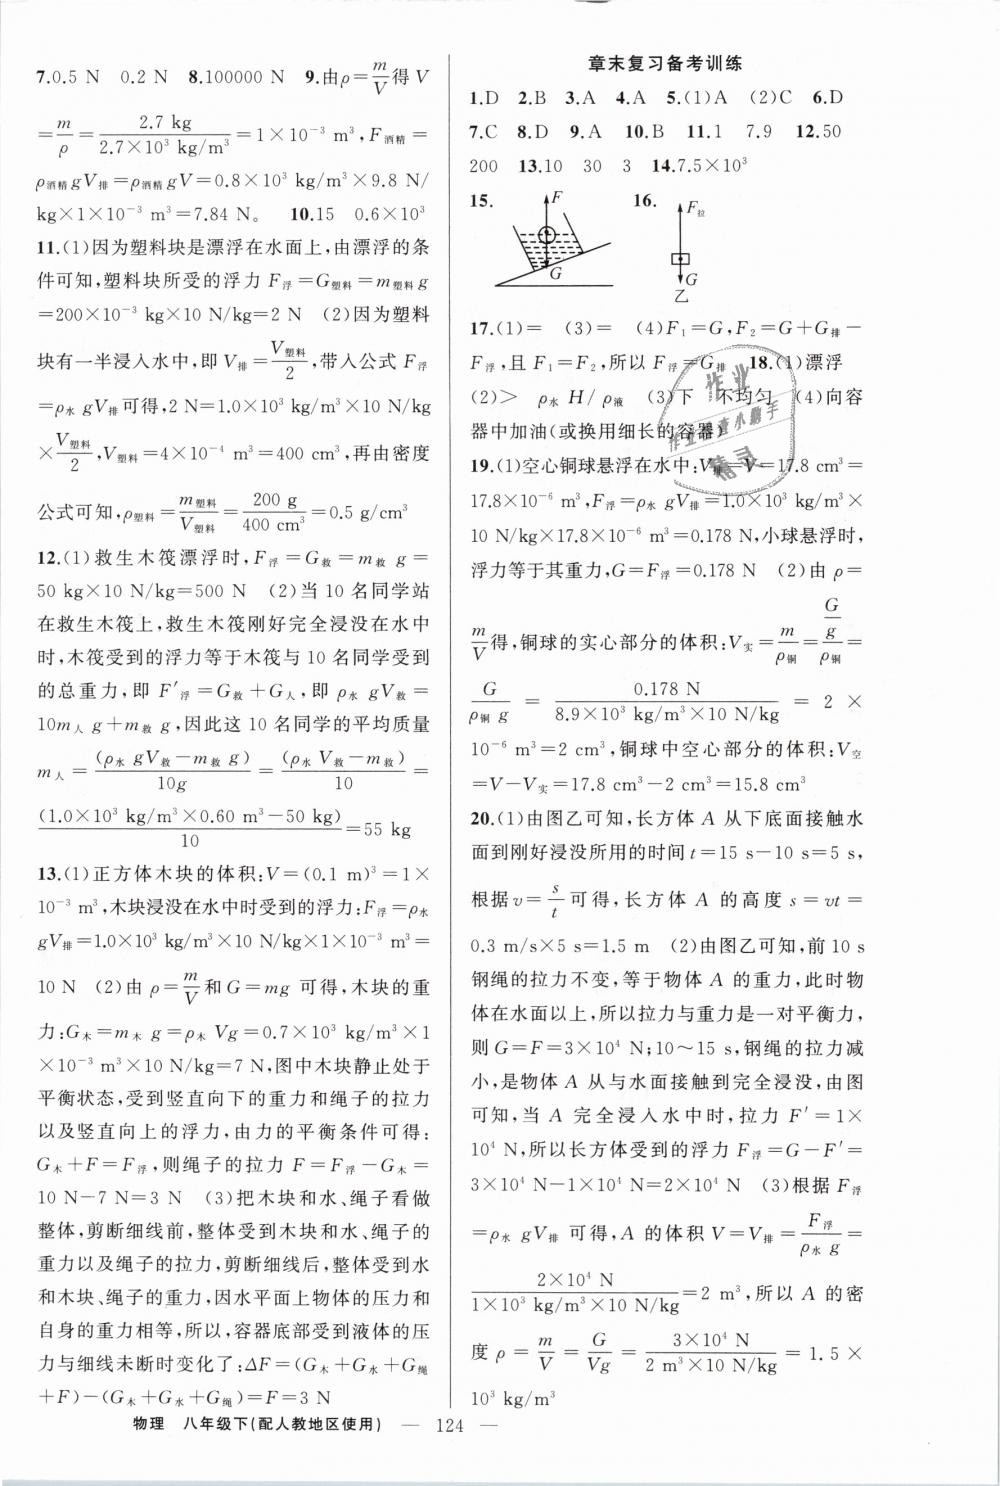 7.0.5 N　0.2 N　8.100000 N　9.由ρ=m/V得 V
=m/ρ=2.7 kg/2.7×10³ kg/m³=1×10⁻³ m³,F酒精=
ρ酒精gV排=ρ酒精gV=0.8×10³ kg/m³×9.8 N/
kg×1×10⁻³ m³=7.84 N。　10.15　0.6×10³
11.(1)因为塑料块是漂浮在水面上,由漂浮的条
件可知,塑料块所受的浮力 F浮=G塑料=m塑料g
=200×10⁻³ kg×10 N/kg=2 N　(2)因为塑料
块有一半浸入水中,即 V排=V塑料/2,带入公式 F浮
=ρ水 gV排可得,2 N=1.0×10³ kg/m³×10 N/kg
×V塑料/2,V塑料=4×10⁻⁴ m³=400 cm³,再由密度
公式可知,ρ塑料=m塑料/V塑料=200 g/400 cm³=0.5 g/cm³
12.(1)救生木筏漂浮时,F浮=G救=m救 g=
50 kg×10 N/kg=500 N　(2)当 10 名同学站
在救生木筏上,救生木筏刚好完全浸没在水中
时,木筏受到的浮力等于木筏与 10 名同学受到
的总重力,即 F′浮=G救+G人,即 ρ水 gV救=
10m人 g+m救 g,因此这 10 名同学的平均质量
m人=(ρ水 gV救-m救 g)/10g=(ρ水 V救-m救)/10=
(1.0×10³ kg/m³×0.60 m³-50 kg)/10=55 kg
13.(1)正方体木块的体积:V=(0.1 m)³=1×
10⁻³ m³,木块浸没在水中时受到的浮力:F浮=ρ水
gV排=1.0×10³ kg/m³×10 N/kg×1×10⁻³ m³=
10 N　(2)由 ρ=m/V和 G=mg 可得,木块的重
力:G木=m木 g=ρ木 Vg=0.7×10³ kg/m³×1
×10⁻³ m³×10 N/kg=7 N,图中木块静止处于
平衡状态,受到竖直向下的重力和绳子的拉力
以及竖直向上的浮力,由力的平衡条件可得:
G木+F=F浮,则绳子的拉力 F=F浮-G木=
10 N-7 N=3 N　(3)把木块和水、绳子看做
整体,剪断细线前,整体受到木块和水、绳子的
重力以及绳子的拉力,剪断细线后,整体受到水
和木块、绳子的重力,因水平面上物体的压力和
自身的重力相等,所以,容器底部受到液体的压
力与细线未断时变化了:ΔF=(G木+G水+G绳
+F)-(G木+G水+G绳)=F=3 N
章末复习备考训练
1.D　2.B　3.A　4.A　5.(1)A　(2)C　6.D
7.C　8.D　9.A　10.B　11.1　7.9　12.50
200　13.10　30　3　14.7.5×10³
15.　F　G　16.　F拉　G　乙
17.(1)=　(3)=　(4)F₁=G,F₂=G+G排-
F浮,且 F₁=F₂,所以 F浮=G排　18.(1)漂浮
(2)>　ρ水 H/ρ液　(3)下　不均匀　(4)向容
器中加油(或换用细长的容器)
19.(1)空心铜球悬浮在水中:V排=V=17.8 cm³=
17.8×10⁻⁶ m³,F浮=ρ水 gV排=1.0×10³ kg/m³×
10 N/kg×17.8×10⁻⁶ m³=0.178 N,小球悬浮时,
浮力等于其重力,G=F浮=0.178 N　(2)由 ρ=
m/V得,铜球的实心部分的体积:V实=m/ρ铜=(G/g)/ρ铜=
G/ρ铜 g=0.178 N/8.9×10³ kg/m³×10 N/kg=2×
10⁻⁶ m³=2 cm³,铜球中空心部分的体积:V空
=V-V实=17.8 cm³-2 cm³=15.8 cm³
20.(1)由图乙可知,长方体 A 从下底面接触水
面到刚好浸没所用的时间 t=15 s-10 s=5 s,
根据 v=s/t 可得,长方体 A 的高度 s=vt=
0.3 m/s×5 s=1.5 m　(2)由图乙可知,前 10 s
钢绳的拉力不变,等于物体 A 的重力,此时物
体在水面以上,所以拉力与重力是一对平衡力,
则 G=F=3×10⁴ N;10～15 s,钢绳的拉力减
小,是物体 A 从与水面接触到完全浸没,由图
可知,当 A 完全浸入水中时,拉力 F′=1×
10⁴ N,所以长方体受到的浮力 F浮=G-F′=
3×10⁴ N-1×10⁴ N=2×10⁴ N　(3)根据 F浮
=ρ水 gV排 可得,A 的体积 V=V排=F浮/ρ水 g=
2×10⁴ N/1×10³ kg/m³×10 N/kg=2 m³,所以 A 的密
度 ρ=m/V=G/Vg=3×10⁴ N/2 m³×10 N/kg=1.5×
10³ kg/m³
物理　八年级下(配人教地区使用)　— 124 —